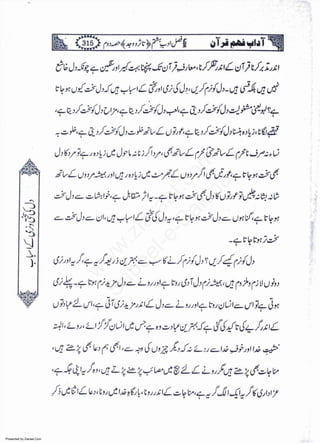 آدابِ فہمِ قرآن
315
اندر تدبر کرنا قرآن کے اندر تفکر کرنا، معارفِ قرآن تک پہنچنا بہت کبیر اور سنگین ہے چونکہ دل خاشع
نہیں ہیں دل کو نرم کریں، دل کی نرمی اور دل کی سختی کے اسباب ہیں کہ دل کیوں سخت ہو جاتا
ہے؟ لہو یعنی مشغولیت دل کو سخت کر دیتی ہے، لعب دل کو سخت کر دیتا ہے، مزاح دل کو سخت کر دیتا ہے،
قہقہے لگانا زیادہ ہنسنا دل کو سخت کر دیتا ہے، عورتوں کے ساتھ خلوت دل کو سخت کر دیتی ہے، خلوت بہ
نساء نہ صرف نامحرم کے ساتھ حتی محرم کے ساتھ بھی، مرد اگر زنانہ ماحول میں زیادہ رہے تو مرد کا دل
سخت ہو جاتا ہے، عورتیں بھی اگر مردوں کے جھرمٹ میں زیادہ رہیں اور ہمیشہ مردوں کے ساتھ
شانہ بشانہ چلیں تو عورتوں کا دل بھی سخت ہو جاتا ہے۔ یہ اثر متقابل ہے، خواہشات سے دل سخت
ہو جاتا ہے، گناہوں سے دل سخت ہو جاتا ہے، یہ دل کی سختی کے اسباب ہیں، ان سے دل سخت سے
سخت تر ہوتا جاتا ہے۔
دل کو نرم کیسے کریں؟ دل کو نرم کرنے کا سب سے بہترین ذریعہ گریہ ہے، گریہ اور نرمی
دونوں لازم و ملزوم ہیں، ہمیشہ نرم دل آدمی روتا ہے اور رونے سے دل مزید نرم ہوتا ہے۔ پہلے نرمی
ہوتی ہے تو اس سے انسان روتا ہے اور رونے سے دل کے اندر مزید نرمی آتی ہے، اس لئے عبادتوں
کے اندر گریے کی تاکید کی گئی کہ بہترین عبادت وہ ہے جس میں انسان گڑگڑائے، روئے، البتہ
خشیتِ خدا اور خوفِ خدا سے روئے نہ کہ دیگر چیزوں کی وجہ سے، ابھی ہم دعا بھی پڑھتے ہیں،
مناجات بھی پڑھتے ہیں مگر رونے کے لئے بیچ میں مصائب پڑھنے پڑتے ہیں، وہ گریہ اپنی جگہ ہے،
عزاداری کا گریہ ایک الگ گریہ ہے، مناجات کے اندر رونا، بارگاہِ خدا میں رونا، دعا کے اثنا میں ذکرِ
Presented by Ziaraat.Com